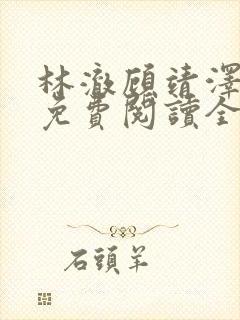 林澈顧靖澤
免費閱讀全
石頭羊